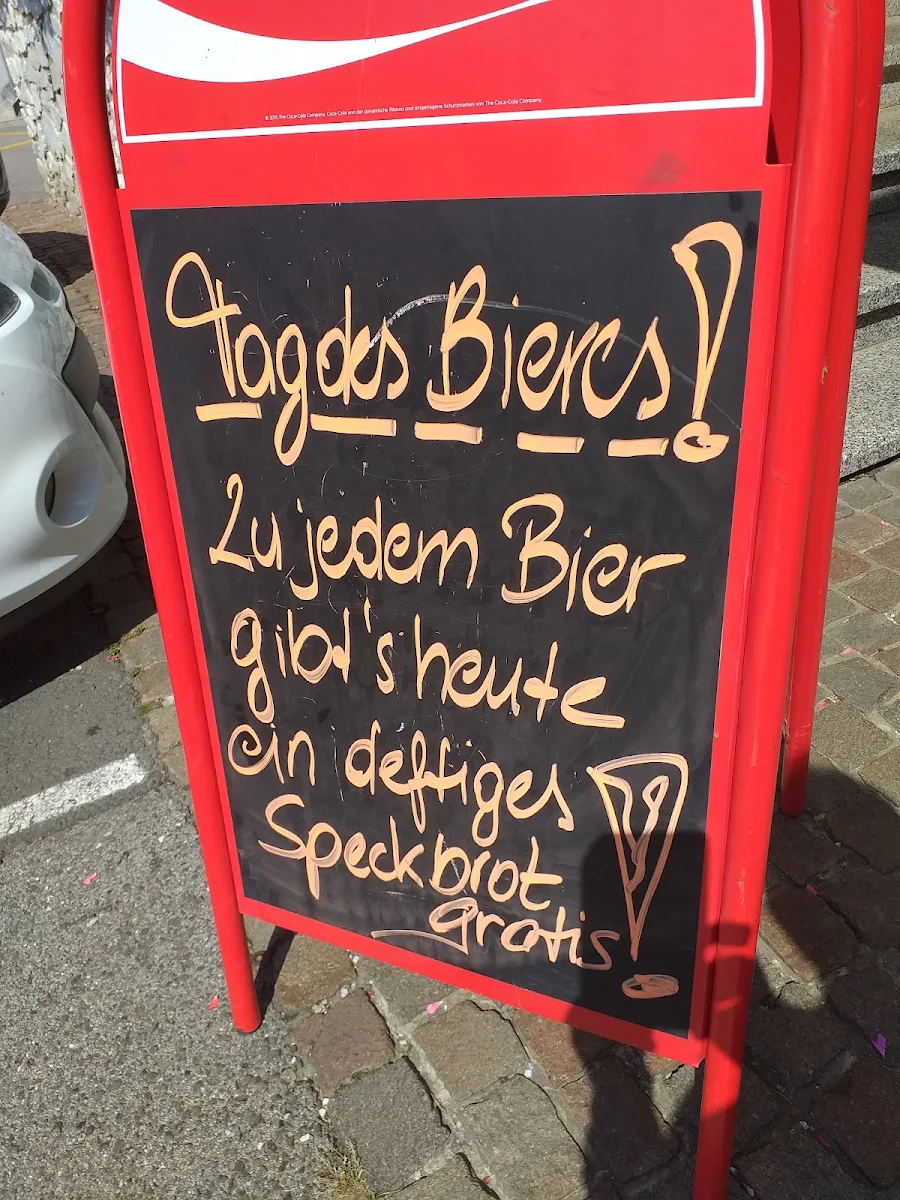 © 2015 The Coca-Cola Company. Coca-Cola und der dynamische Ribbon sind eingetragene Schutzmarken von The Coca-Cola Company.
Tag des Bieres!
Zu jedem Bier
gibt's heute
ein deftiges
Speckbrot
gratis!